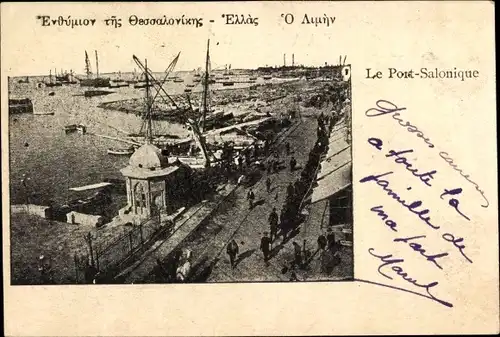 Ἐνθύμιον τῆς Θεσσαλονίκης - Ἑλλὰς Ὁ Λιμὴν
Le Port-Salonique
Grosses caresses
a toute la
famille de
ma part
Marcel